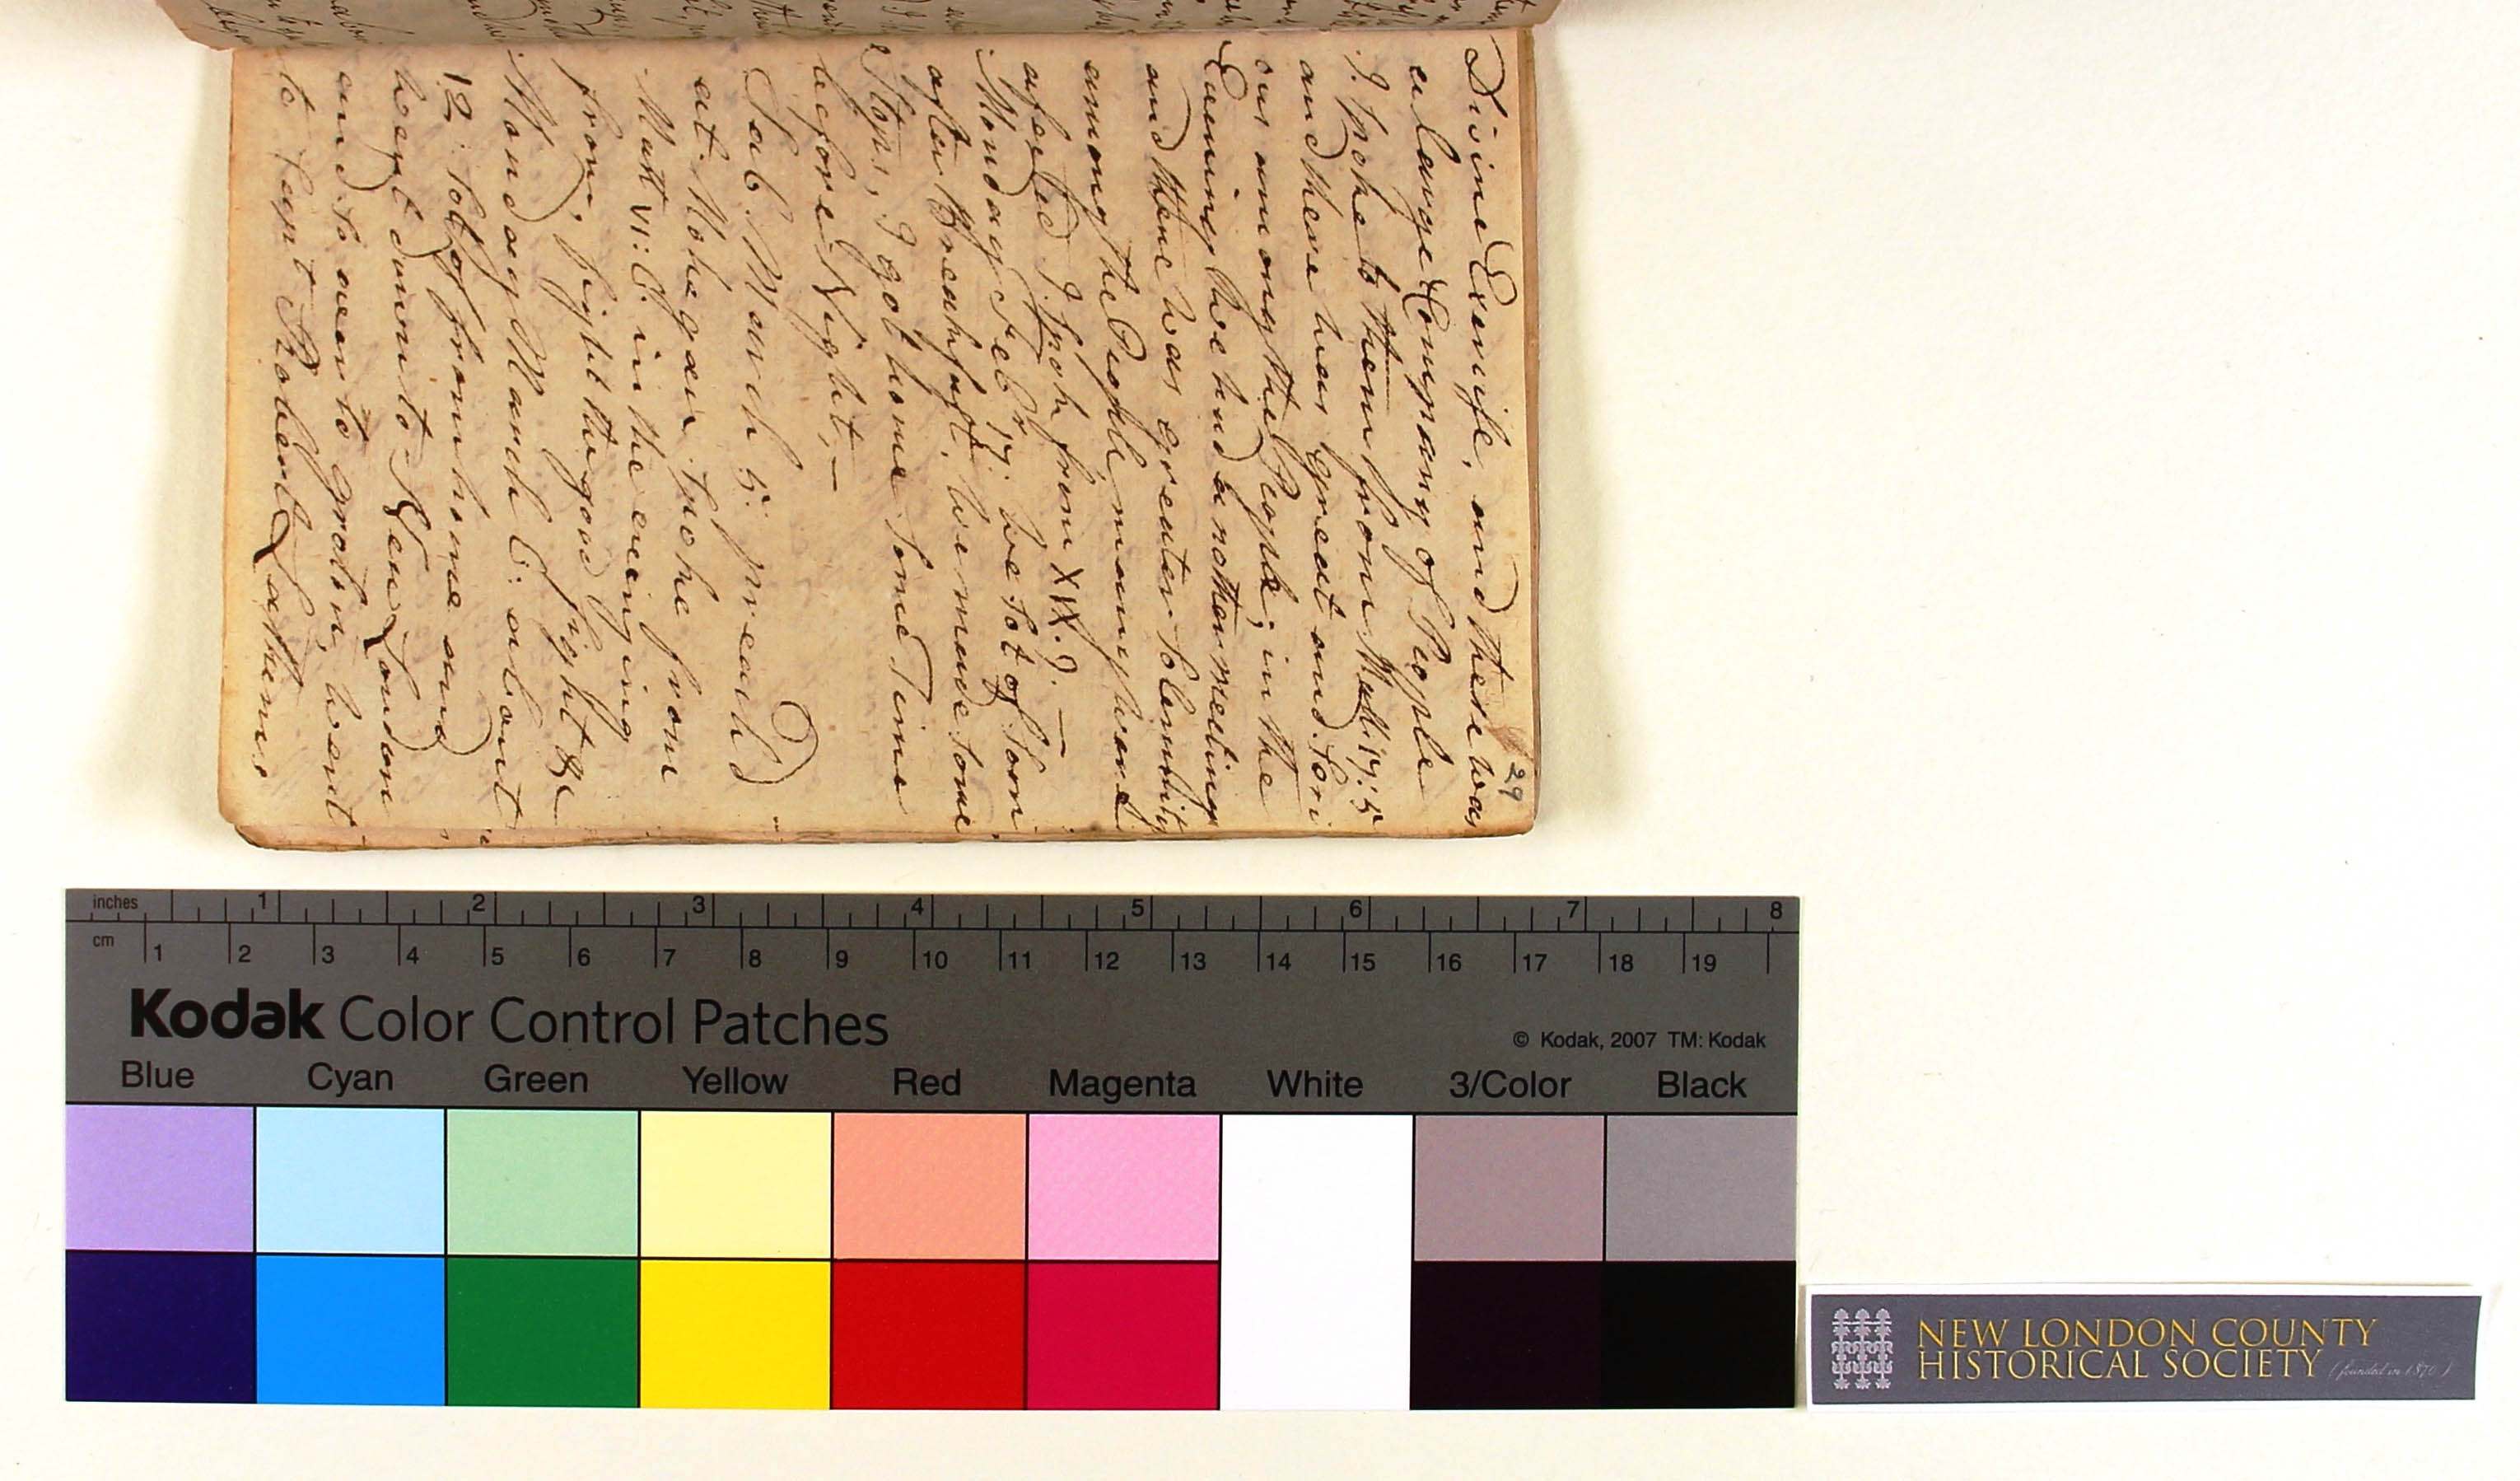 29
Divine Exercise, and there was
a large Company of People
I Spoke to them from Matt: 17: 5
and there was great and Seri
ous among the People; in the
Evening we had a nother meeting
and there was greater Solemnity
among the People, many were
afected I Spoke from XIX. 9. —
Monday Febr 17. we Sot of Soon
after Breakfast, we made Some
Stops, I got home Some Time
before Night, —
Sab. March 5: preach'd
at Mohegan Spoke from
Matt VI: 6. in the evening
from, fight the good fight &c
Monday March 6: about
12: Sot of from home and
went down to New London
and So over to groton, went
to Capt Robert Lathims,
inches 1 2 3 4 5 6 7 8
cm 1 2 3 4 5 6 7 8 9 10 11 12 13 14 15 16 17 18 19
Kodak Color Control Patches
© Kodak, 2007 TM: Kodak
Blue Cyan Green Yellow Red Magenta White 3/Color Black
NEW LONDON COUNTY
HISTORICAL SOCIETY (founded in 1870)